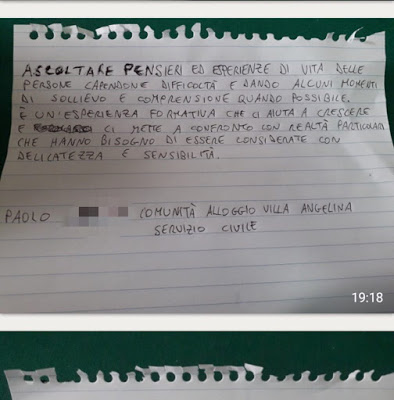 ASCOLTARE PENSIERI ED ESPERIENZE DI VITA DELLE
PERSONE CAPENDONE DIFFICOLTÀ E DANDO ALCUNI MOMENTI
DI SOLLIEVO E COMPRENSIONE QUANDO POSSIBILE.
È UN'ESPERIENZA FORMATIVA CHE CI AIUTA A CRESCERE
E CI METTE A CONFRONTO CON REALTÀ PARTICOLARI
CHE HANNO BISOGNO DI ESSERE CONSIDERATE CON
DELICATEZZA E SENSIBILITÀ.
PAOLO COMUNITÀ ALLOGGIO VILLA ANGELINA
SERVIZIO CIVILE
19:18